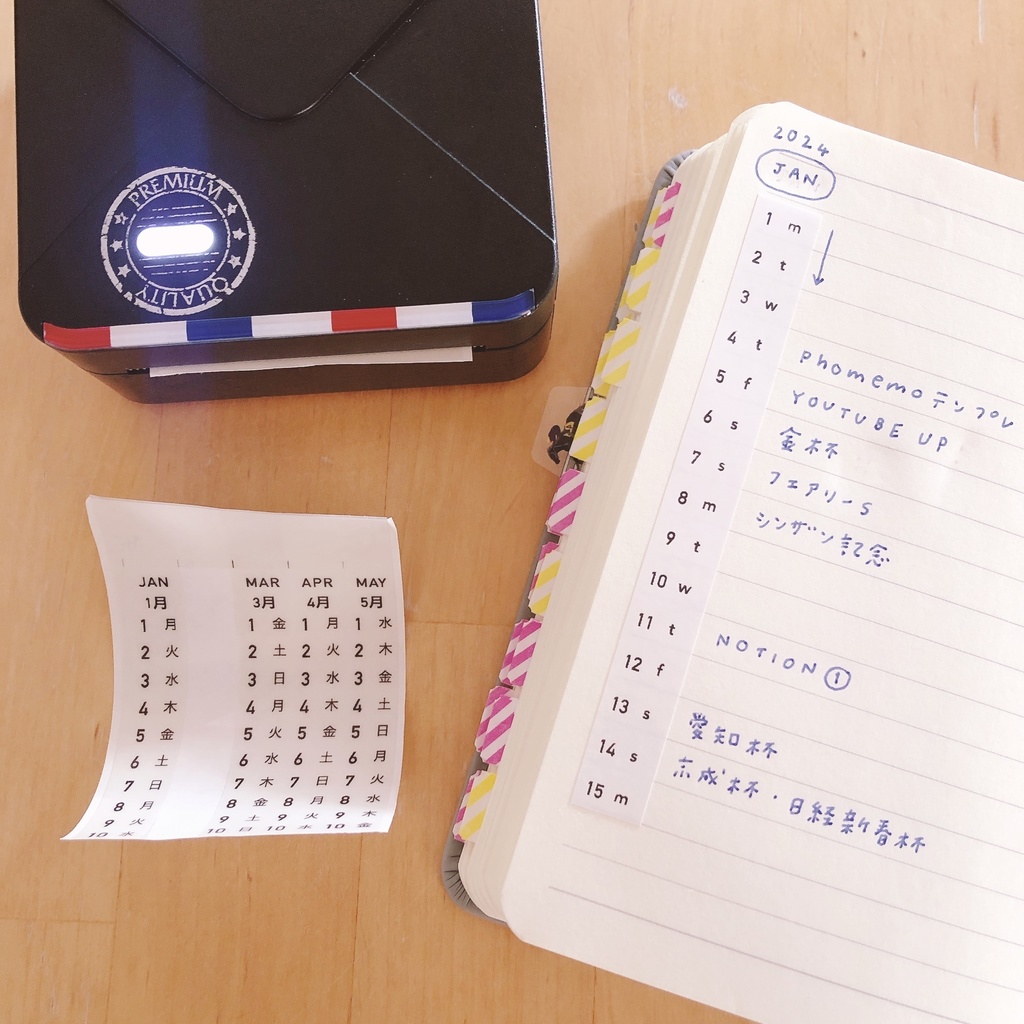 PREMIUM
QUALITY
JAN MAR APR MAY
1月 3月 4月 5月
1 月 1 金 1 月 1 水
2 火 2 土 2 火 2 木
3 水 3 日 3 水 3 金
4 木 4 月 4 木 4 土
5 金 5 火 5 金 5 日
6 土 6 水 6 土 6 月
7 日 7 木 7 日 7 火
8 月 8 金 8 月 8 水
9 火 9 土 9 火 9 木
10 水 10 日 10 水 10 金
2024
JAN
1 m ↓
2 t
3 w
4 t phomemoテンプレ
5 f YOUTUBE UP
6 s 金杯
7 s フェアリーS
8 m シンザン記念
9 t
10 w
11 t NOTION①
12 f
13 s 愛知杯
14 s 京成杯・日経新春杯
15 m